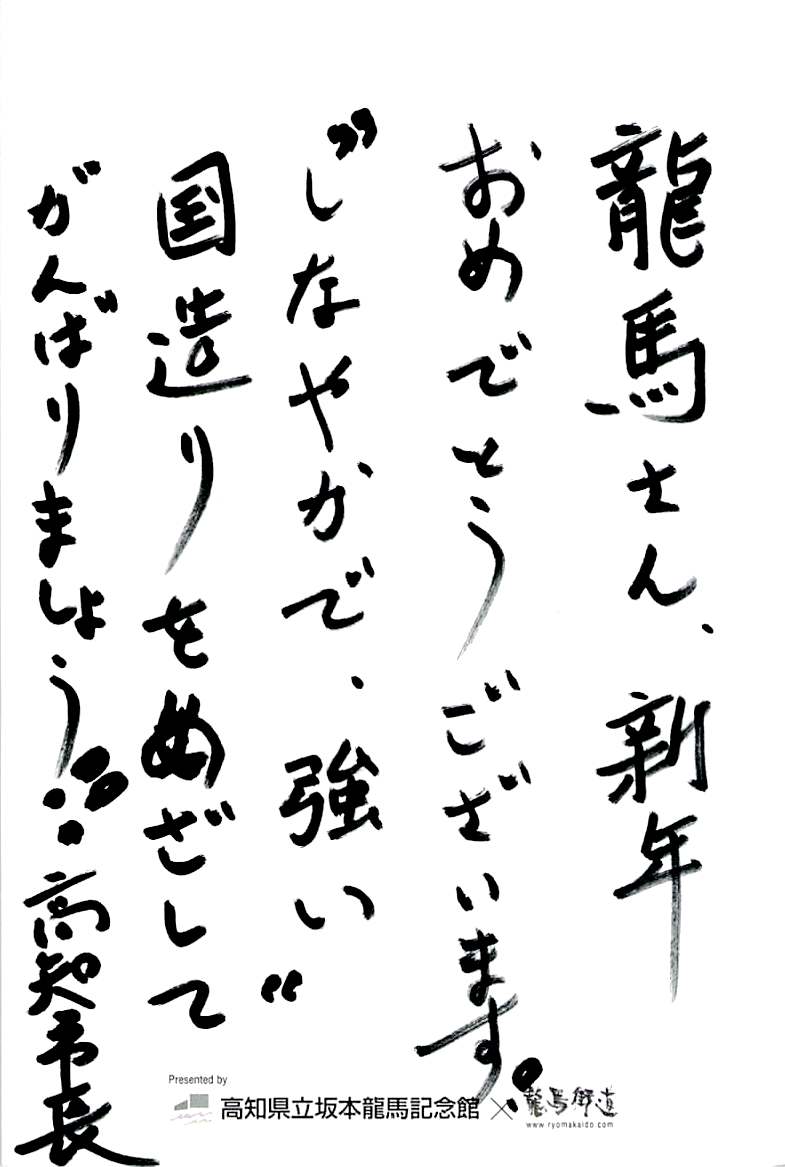 龍馬さん、新年
おめでとうございます。
"しなやかで、強い"
国造りをめざして
がんばりましょう!!
高知市長
Presented by
高知県立坂本龍馬記念館×龍馬街道
www.ryomakaido.com